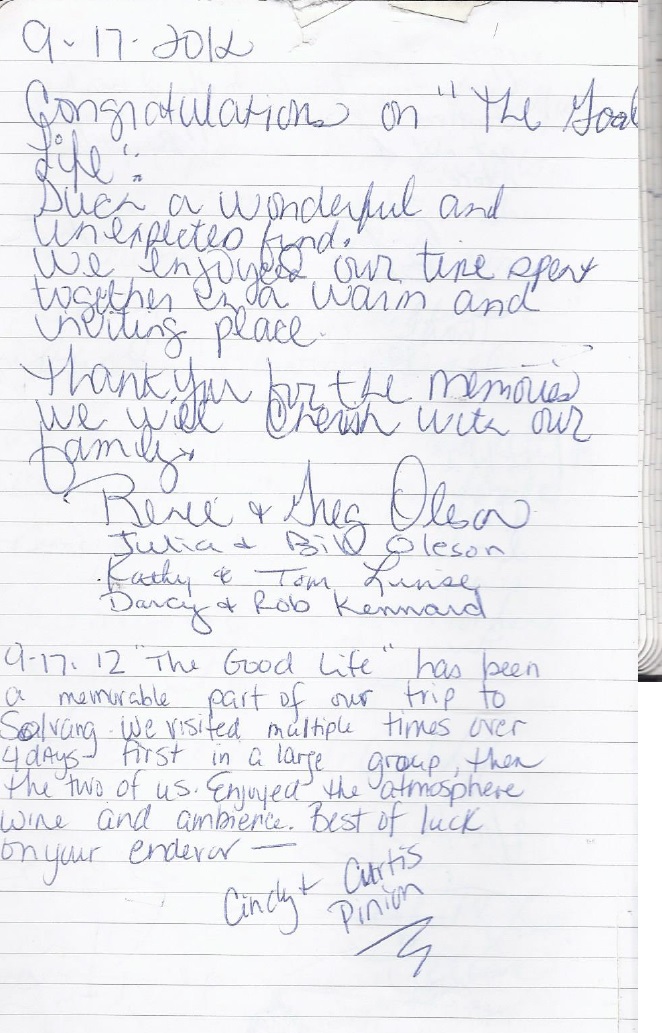 9-17-2012
Congratulations on "The Good
Life".
Such a wonderful and
unexpected find.
We enjoyed our time spent
together in a warm and
inviting place.
Thank you for the memories
we will cherish with our
family.
Renee & Greg Oleson
Julia & Bill Oleson
Kathy & Tom
Darcy & Rob Kennard
9-17-12 "The Good Life" has been
a memorable part of our trip to
Solvang. We visited multiple times over
4 days - first in a large group, then
the two of us. Enjoyed the atmosphere
wine and ambience. Best of luck
on your endevor —
Cindy & Curtis
Pinion